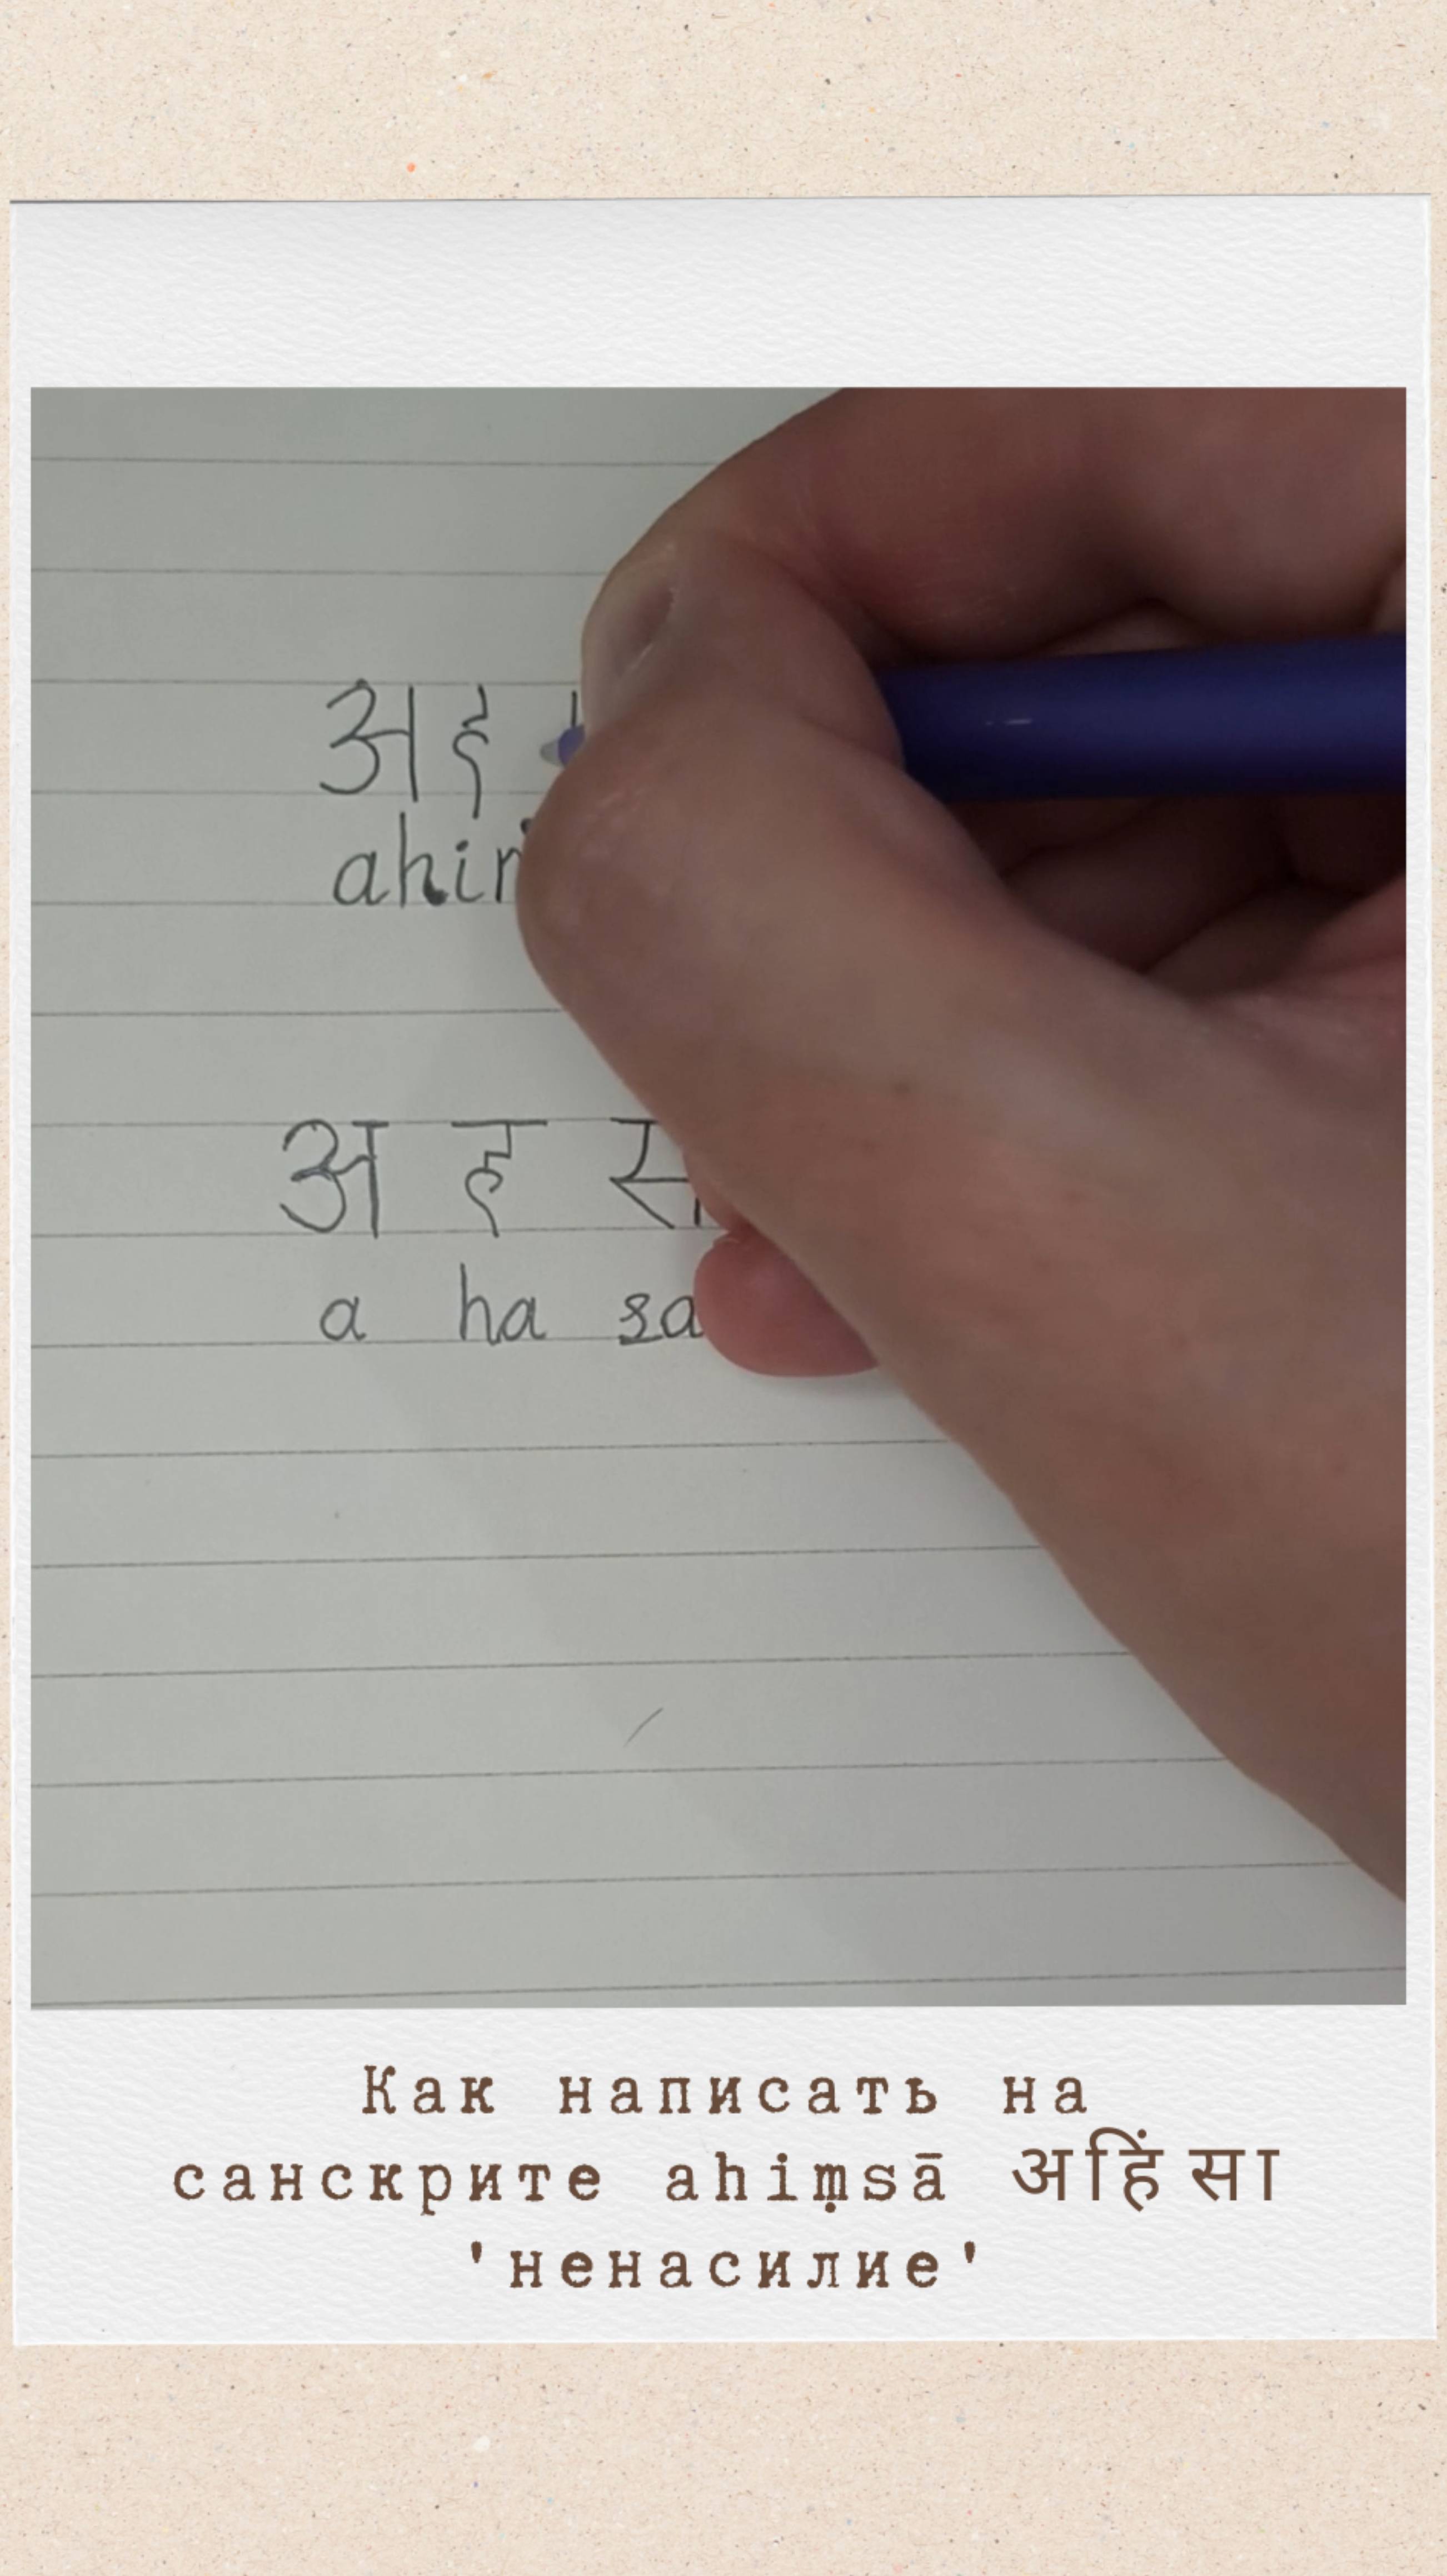 अह
ahi
अ ह स
a ha sa
Как написать на
санскрите ahiṃsā अहिंसा
'ненасилие'